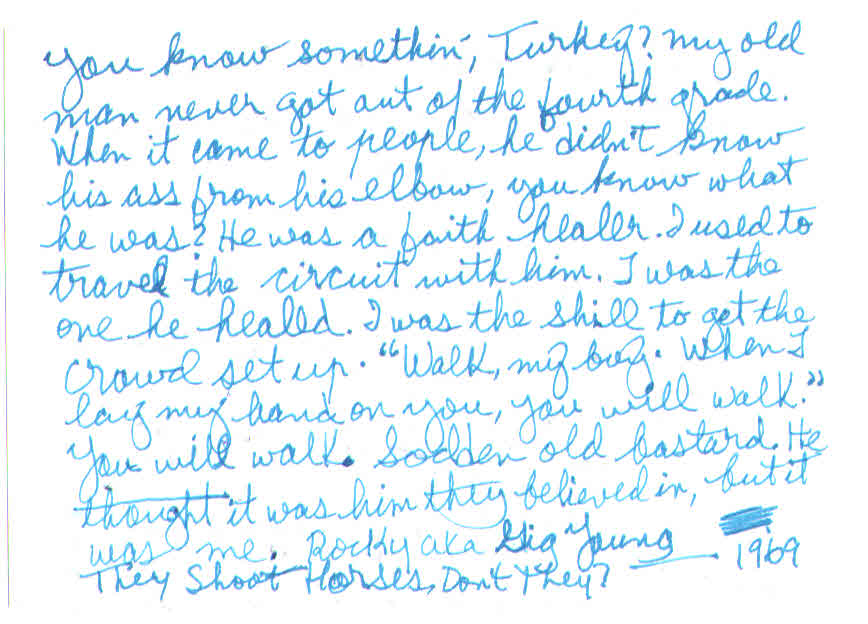 You know somethin', Turkey? my old
man never got out of the fourth grade.
When it came to people, he didn't know
his ass from his elbow, you know what
he was? He was a faith healer. I used to
travel the circuit with him. I was the
one he healed. I was the shill to get the
crowd set up. "Walk, my boy. When I
lay my hand on you, you will walk."
You will walk. Sodden old bastard. He
thought it was him they believed in, but it
was me. Rocky aka Gig Young
They Shoot Horses, Don't They? 1969